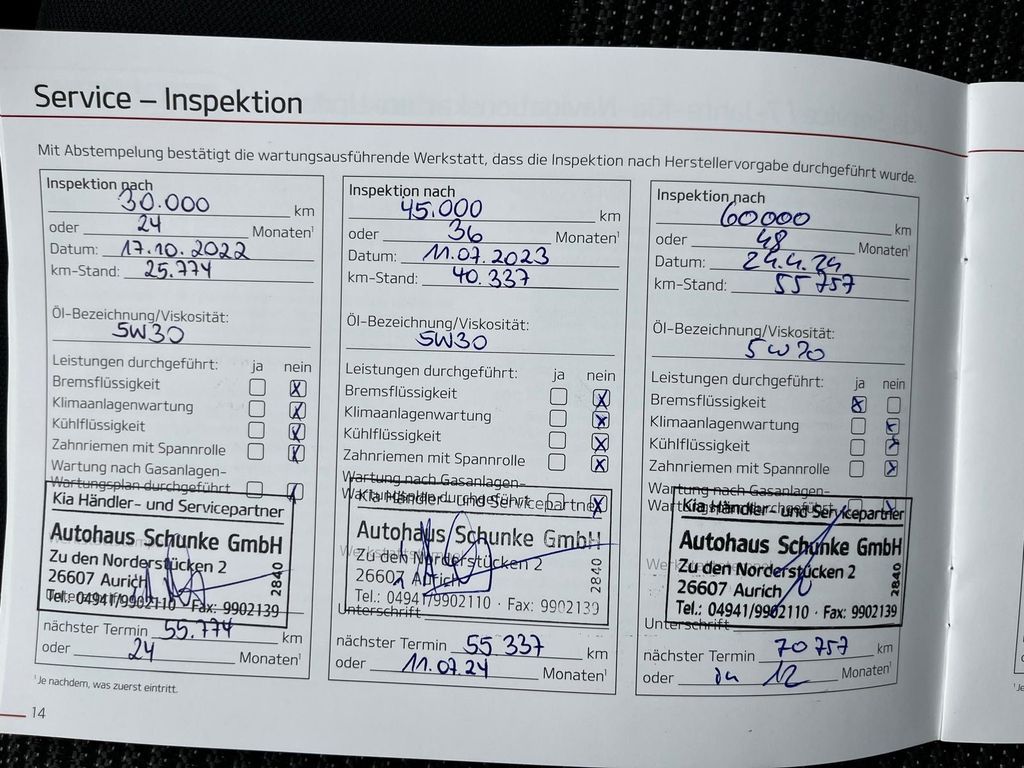 Service – Inspektion
Mit Abstempelung bestätigt die wartungsausführende Werkstatt, dass die Inspektion nach Herstellervorgabe durchgeführt wurde.
Inspektion nach
30.000 km
oder 24 Monaten¹
Datum: 17.10.2022
km-Stand: 25.774
Öl-Bezeichnung/Viskosität:
5W30
Leistungen durchgeführt: ja nein
Bremsflüssigkeit X
Klimaanlagenwartung X
Kühlflüssigkeit X
Zahnriemen mit Spannrolle X
Wartung nach Gasanlagen-
Wartungsplan durchgeführt X
Kia Händler- und Servicepartner
Autohaus Schunke GmbH
Zu den Norderstücken 2
26607 Aurich
Tel.: 04941/9902110 · Fax: 9902139
2840
nächster Termin 55.774 km
oder 24 Monaten¹
Inspektion nach
45.000 km
oder 36 Monaten¹
Datum: 11.07.2023
km-Stand: 40.337
Öl-Bezeichnung/Viskosität:
5W30
Leistungen durchgeführt: ja nein
Bremsflüssigkeit X
Klimaanlagenwartung X
Kühlflüssigkeit X
Zahnriemen mit Spannrolle X
Wartung nach Gasanlagen-
Wartungsplan durchgeführt X
Kia Händler- und Servicepartner
Autohaus Schunke GmbH
Zu den Norderstücken 2
26607 Aurich
Tel.: 04941/9902110 · Fax: 9902139
2840
Unterschrift
nächster Termin 55 337 km
oder 11.07.24 Monaten¹
Inspektion nach
60000 km
oder 48 Monaten¹
Datum: 24.4.24
km-Stand: 55757
Öl-Bezeichnung/Viskosität:
5W30
Leistungen durchgeführt: ja nein
Bremsflüssigkeit X
Klimaanlagenwartung X
Kühlflüssigkeit X
Zahnriemen mit Spannrolle X
Wartung nach Gasanlagen-
Wartungsplan durchgeführt X
Kia Händler- und Servicepartner
Autohaus Schunke GmbH
Zu den Norderstücken 2
26607 Aurich
Tel.: 04941/9902110 · Fax: 9902139
2840
Unterschrift
nächster Termin 70757 km
oder in 12 Monaten¹
¹Je nachdem, was zuerst eintritt.
14